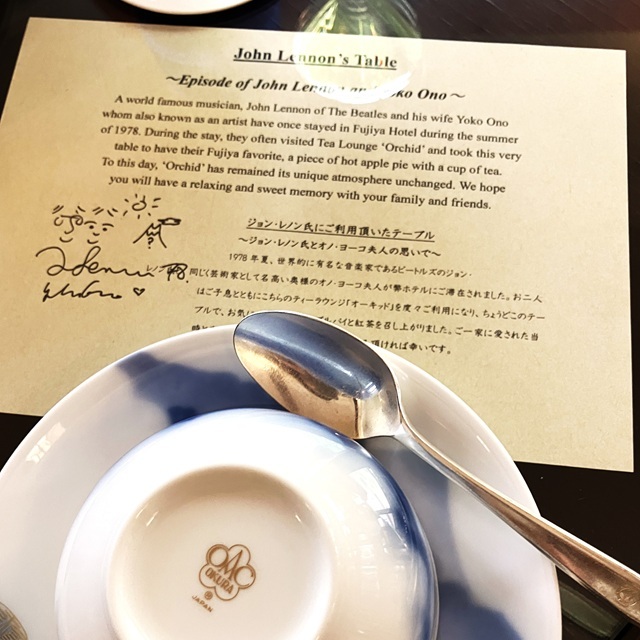 John Lennon's Table
～Episode of John Lennon and Yoko Ono～
A world famous musician, John Lennon of The Beatles and his wife Yoko Ono
whom also known as an artist have once stayed in Fujiya Hotel during the summer
of 1978. During the stay, they often visited Tea Lounge 'Orchid' and took this very
table to have their Fujiya favorite, a piece of hot apple pie with a cup of tea.
To this day, 'Orchid' has remained its unique atmosphere unchanged. We hope
you will have a relaxing and sweet memory with your family and friends.
ジョン・レノン氏にご利用頂いたテーブル
～ジョン・レノン氏とオノ・ヨーコ夫人の思いで～
1978年夏、世界的に有名な音楽家であるビートルズのジョン・
同じく芸術家として名高い奥様のオノ・ヨーコ夫人が弊ホテルにご滞在されました。お二人
はご子息とともにこちらのティーラウンジ「オーキッド」を度々ご利用になり、ちょうどこのテー
ブルで、お気に パイと紅茶を召し上がりました。ご一家に愛された当
時と 頂ければ幸いです。
OAC
OKURA
JAPAN